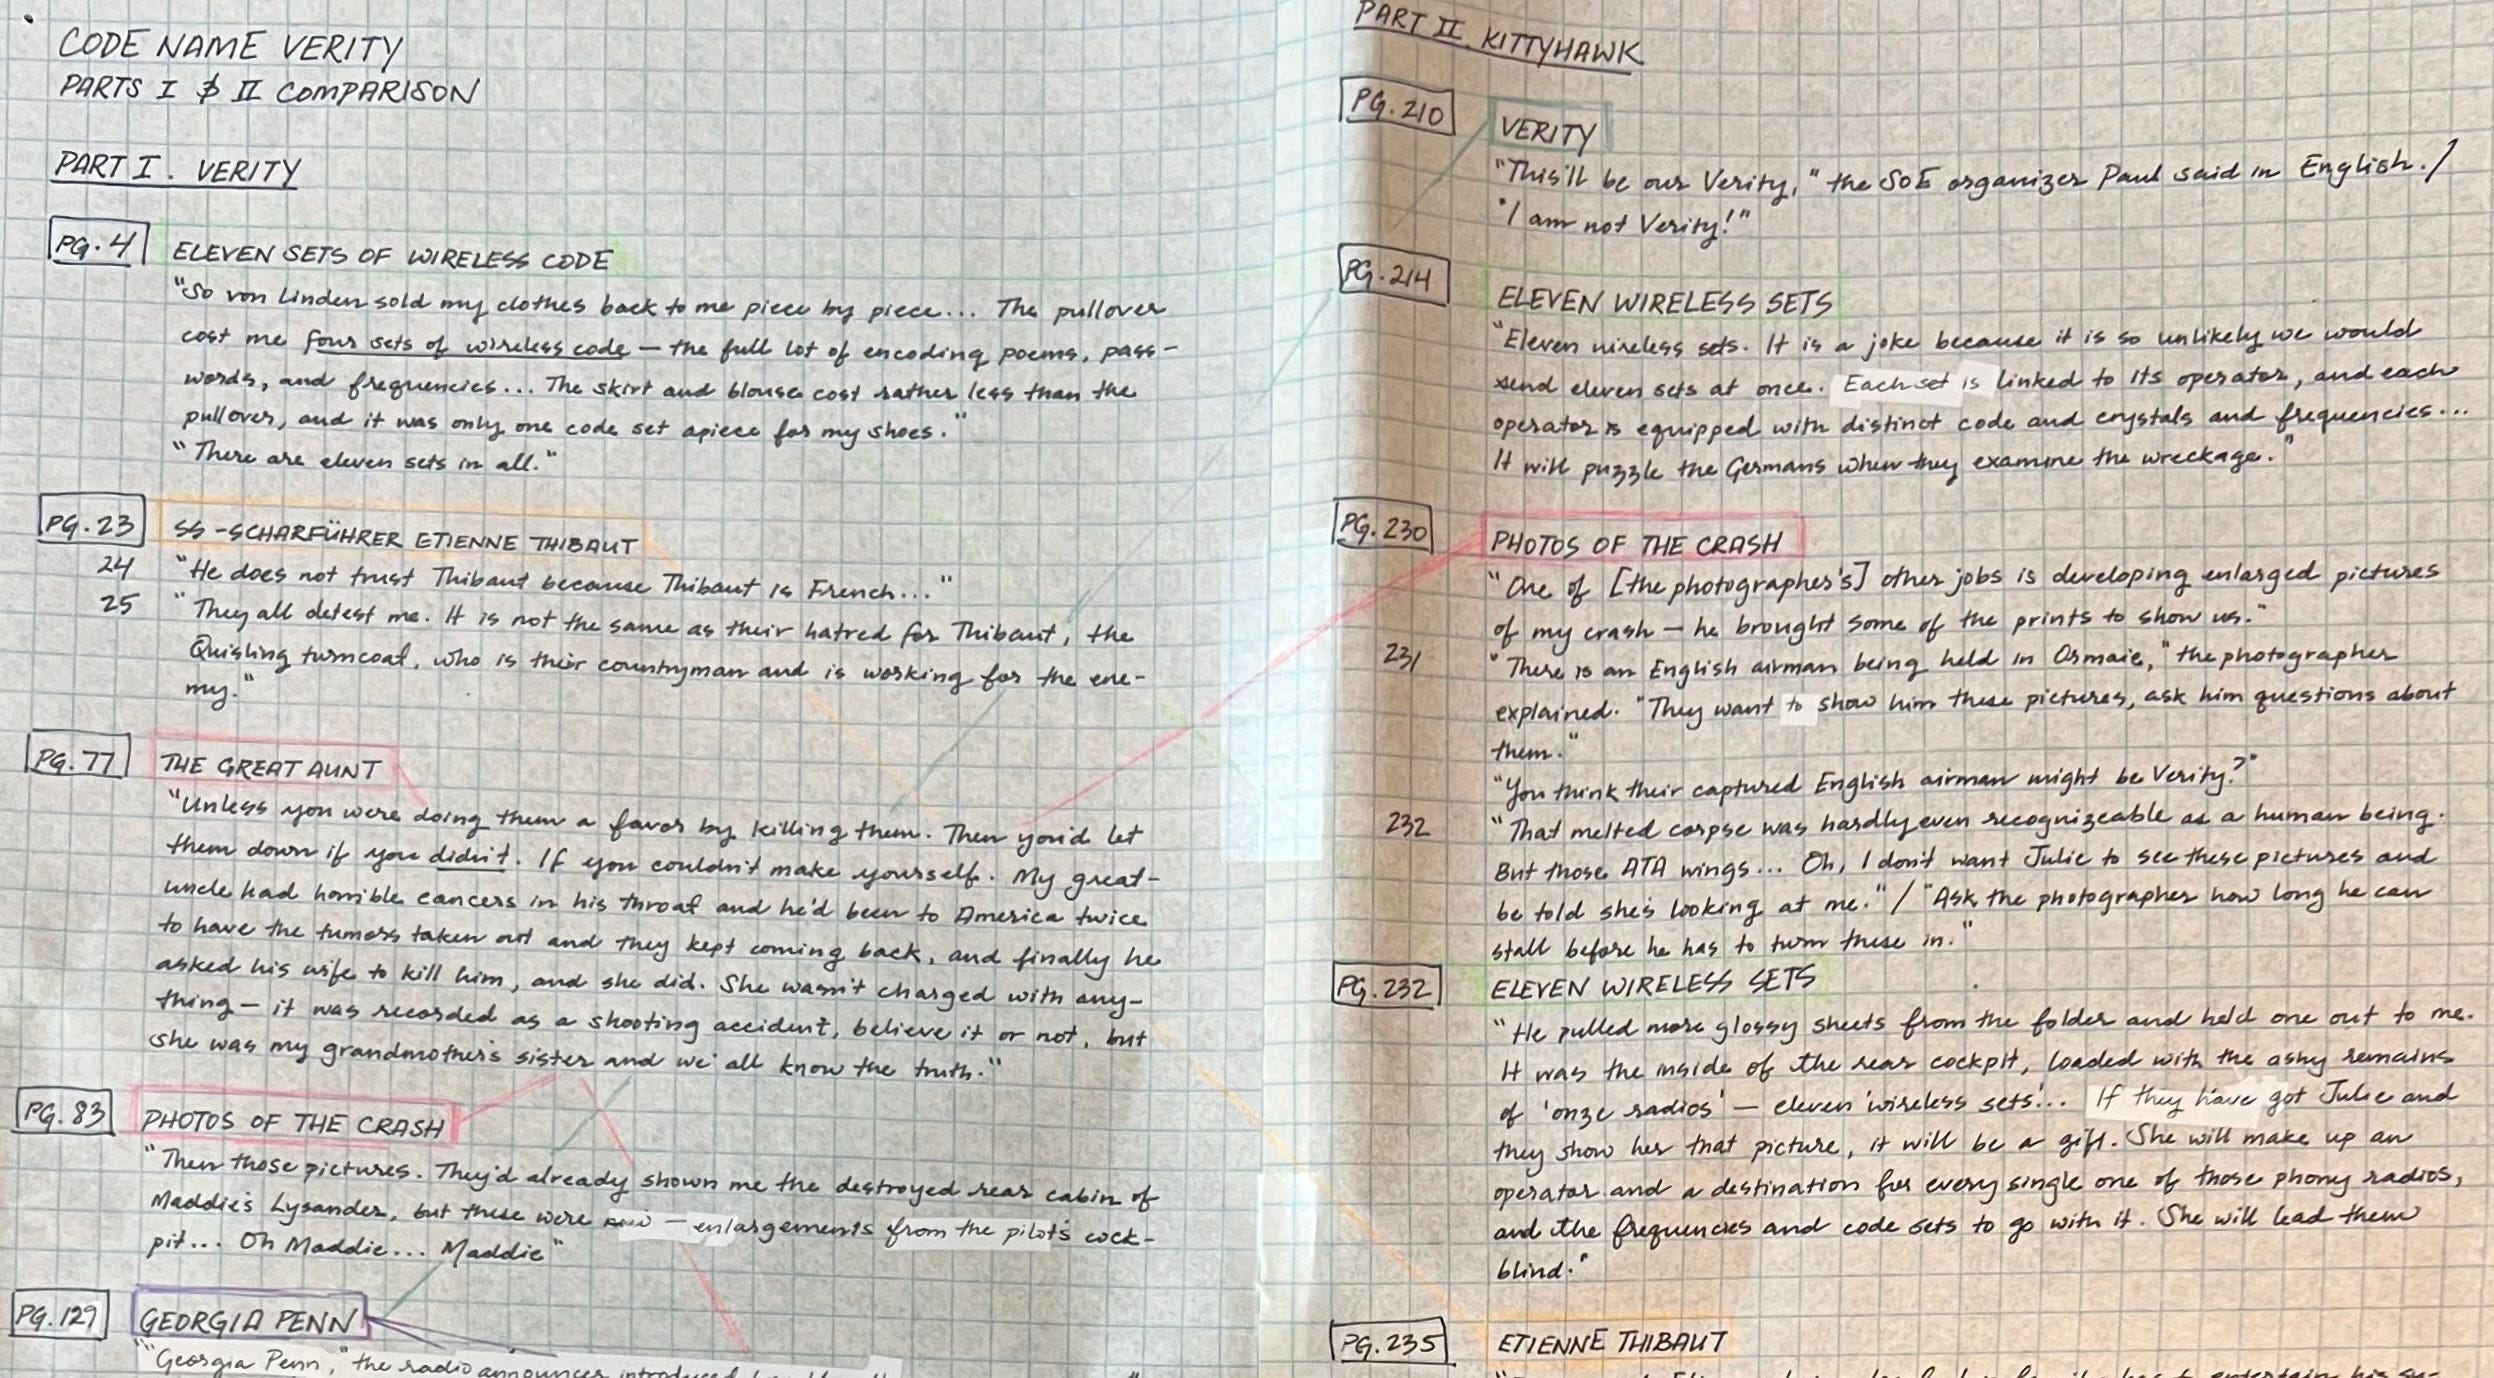 CODE NAME VERITY
PARTS I & II COMPARISON
PART I. VERITY
PG. 4
ELEVEN SETS OF WIRELESS CODE
"So von Linden sold my clothes back to me piece by piece... The pullover
cost me four sets of wireless code — the full lot of encoding poems, pass-
words, and frequencies... The skirt and blouse cost rather less than the
pullover, and it was only one code set apiece for my shoes."
"There are eleven sets in all."
PG. 23
SS-SCHARFÜHRER ETIENNE THIBAUT
24 "He does not trust Thibaut because Thibaut is French..."
25 "They all detest me. It is not the same as their hatred for Thibaut, the
Quisling turncoat, who is their countryman and is working for the ene-
my."
PG. 77
THE GREAT AUNT
"Unless you were doing them a favor by killing them. Then you'd let
them down if you didn't. If you couldn't make yourself. My great-
uncle had horrible cancers in his throat and he'd been to America twice
to have the tumors taken out and they kept coming back, and finally he
asked his wife to kill him, and she did. She wasn't charged with any-
thing — it was recorded as a shooting accident, believe it or not, but
she was my grandmother's sister and we all know the truth."
PG. 83
PHOTOS OF THE CRASH
"Then those pictures. They'd already shown me the destroyed rear cabin of
Maddie's Lysander, but these were — enlargements from the pilot's cock-
pit... Oh Maddie... Maddie"
PG. 129
GEORGIA PENN
"Georgia Penn," the radio announcer introduced
PART II. KITTYHAWK
PG. 210
VERITY
"This'll be our Verity," the SOE organizer Paul said in English. /
"I am not Verity!"
PG. 214
ELEVEN WIRELESS SETS
"Eleven wireless sets. It is a joke because it is so unlikely we would
send eleven sets at once. Each set is linked to its operator, and each
operator is equipped with distinct code and crystals and frequencies...
It will puzzle the Germans when they examine the wreckage."
PG. 230
PHOTOS OF THE CRASH
"One of [the photographer's] other jobs is developing enlarged pictures
of my crash — he brought some of the prints to show us."
231 "There is an English airman being held in Ormaie," the photographer
explained. "They want to show him these pictures, ask him questions about
them."
"You think their captured English airman might be Verity?"
232 "That melted corpse was hardly even recognizeable as a human being.
But those ATA wings... Oh, I don't want Julie to see these pictures and
be told she's looking at me." / "Ask the photographer how long he can
stall before he has to turn these in."
PG. 232
ELEVEN WIRELESS SETS
"He pulled more glossy sheets from the folder and held one out to me.
It was the inside of the rear cockpit, loaded with the ashy remains
of 'onze radios' — eleven 'wireless sets'... If they have got Julie and
they show her that picture, it will be a gift. She will make up an
operator and a destination for every single one of those phony radios,
and the frequencies and code sets to go with it. She will lead them
blind."
PG. 235
ETIENNE THIBAUT